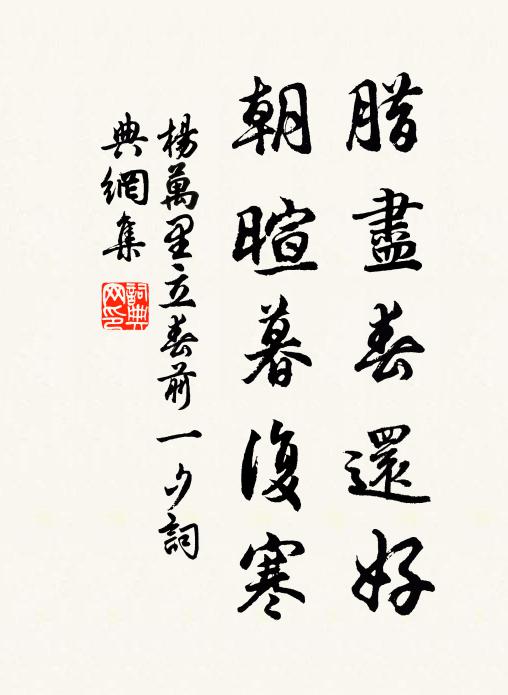 腊盡春還好
朝暄暮復寒
楊萬里立春前一夕詞
典網集
詞典
网印